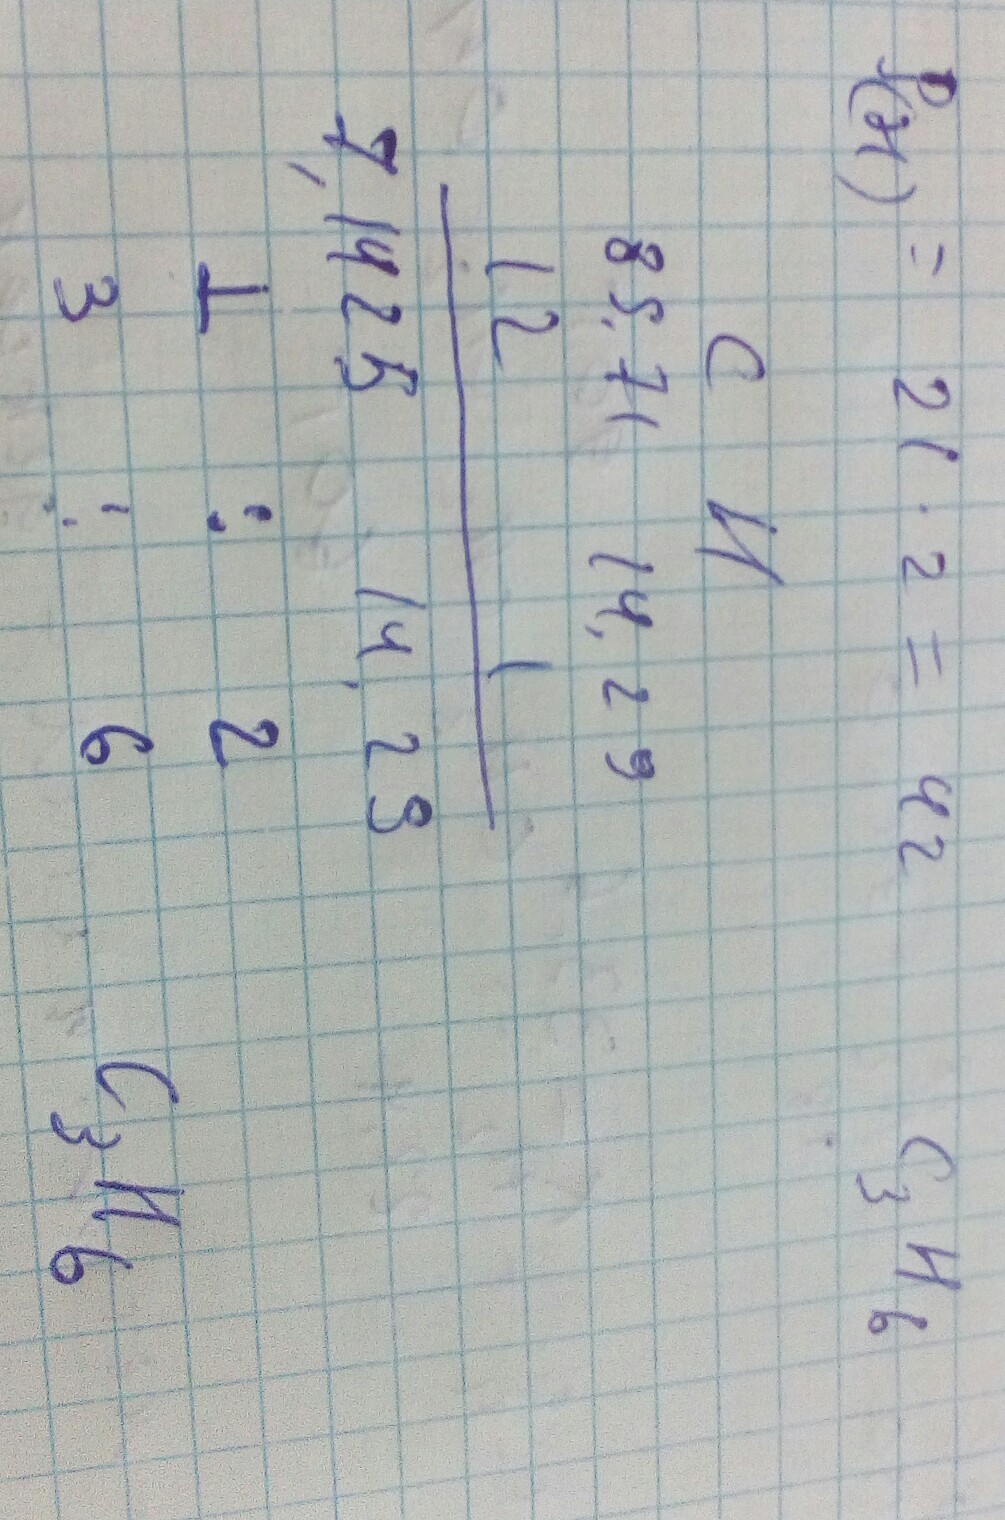 P(H) = 21 · 2 = 42 C3H6
C H
85,71 14,29
12 1
7,1425 14,29
1 : 2
3 : 6 C3H6